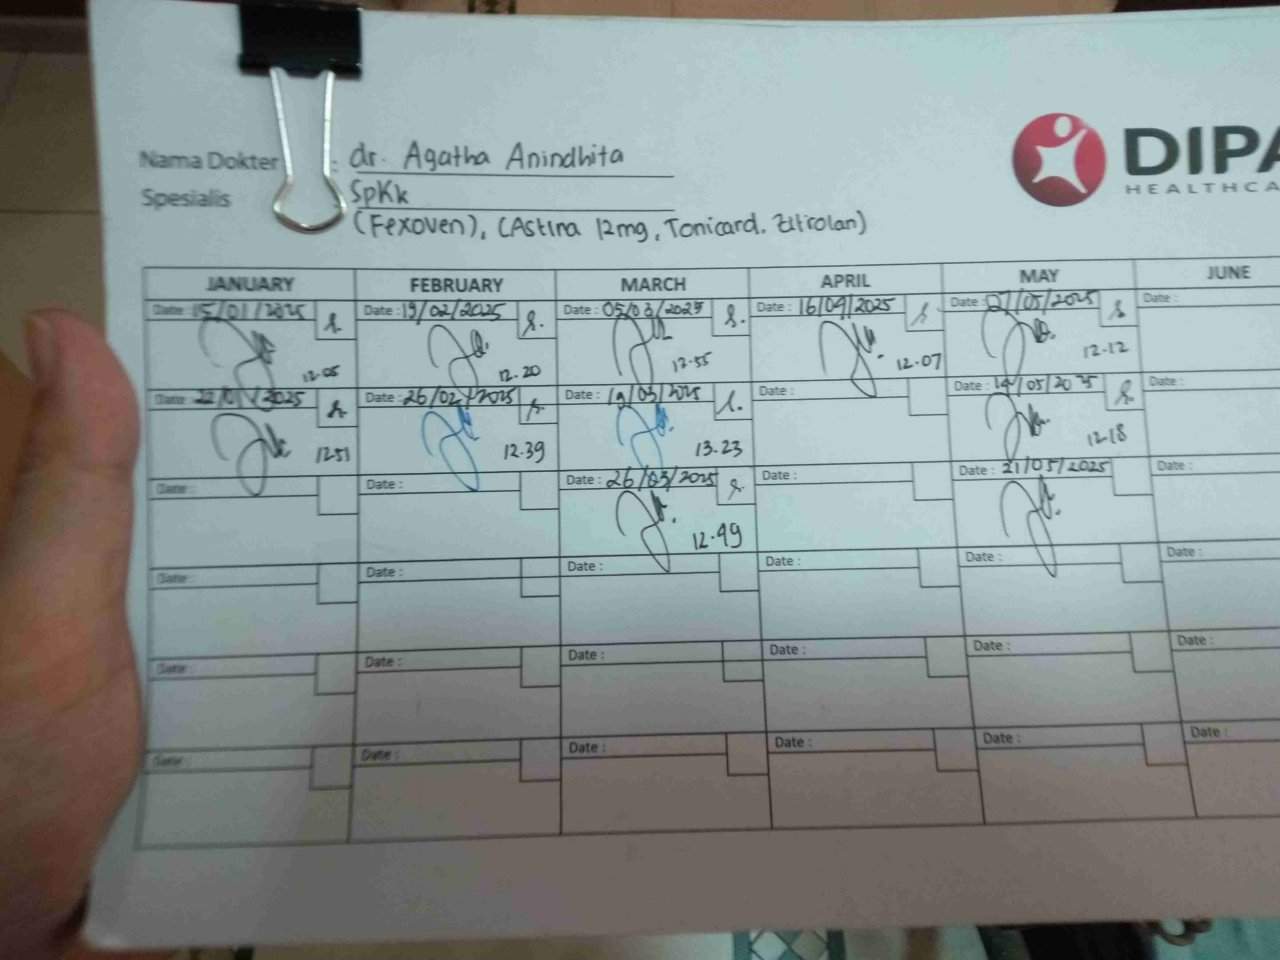 Nama Dokter : dr. Agatha Anindhita
Spesialis SpKk
(Fexoven), (Astina 12mg, Tonicard, Zitrolan)
DIPA
HEALTHCA
JANUARY FEBRUARY MARCH APRIL MAY JUNE
Date : 15/01/2025 Date : 19/02/2025 Date : 05/03/2025 Date : 16/04/2025 Date : 07/05/2025 Date :
12.05 12.20 12.55 12.07 12.12
Date : 22/01/2025 Date : 26/02/2025 Date : 19/03/2025 Date : Date : 14/05/2025 Date :
12.51 12.39 13.23 12.18
Date : Date : Date : 26/03/2025 Date : Date : 21/05/2025 Date :
12.49
Date : Date : Date : Date : Date : Date :
Date : Date : Date : Date : Date : Date :
Date : Date : Date : Date : Date : Date :